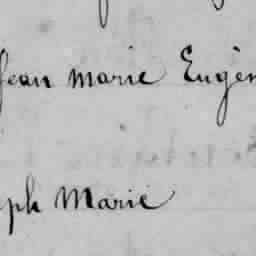 Jean marie Eugèn
ph Marie